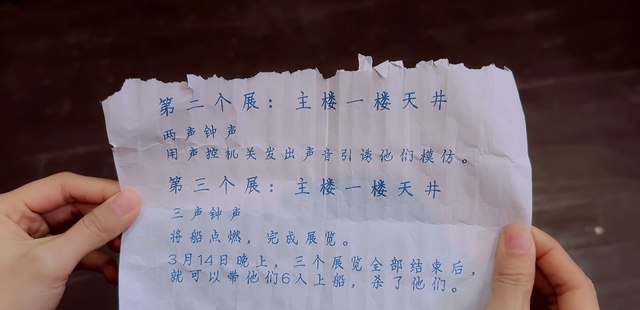 第二个展：主楼一楼天井
两声钟声
用声控机关发出声音引诱他们模仿。
第三个展：主楼一楼天井
三声钟声
将船点燃，完成展览。
3月14日晚上，三个展览全部结束后，
就可以带他们6人上船，杀了他们。